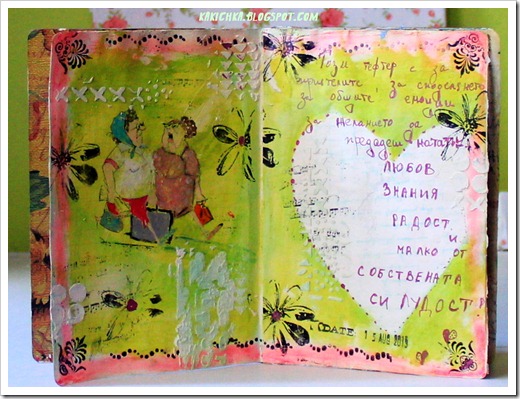 KAKICHKA.BLOGSPOT.COM
Този тефтер е за
приятелите, за споделянето
за общите емоции
за желанието да
предадеш нататък
ЛЮБОВ
ЗНАНИЯ
РАДОСТ
И
МАЛКО ОТ
СОБСТВЕНАТА
СИ ЛУДОСТ!
DATE 15 AUG 2013